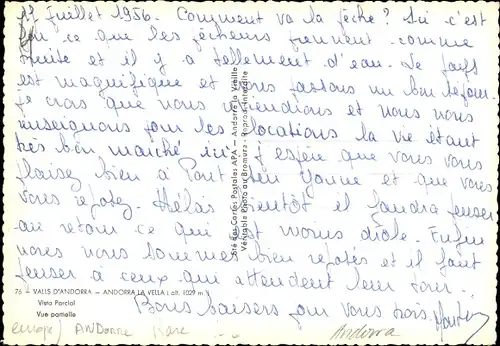 17 juillet 1956. Comment va la pêche ? Ici c'est
ce que les pêcheurs prennent comme
truite et il y a tellement d'eau. Le pays
est magnifique et nous passons un bon séjour.
je crois que nous reviendrons et nous nous
renseignons pour les locations la vie étant
très bon marché ici. J'espère que vous vous
plaisez bien à Pont sur Yonne et que vous
vous reposez. Hélas bientôt il faudra penser
au retour ce qui est moins drôle. Enfin
nous nous sommes bien reposés et il faut
penser à ceux qui attendent leur tour.
Bons baisers pour vous trois.
76 - VALLS D'ANDORRA - ANDORRA LA VELLA (alt. 1029 m.)
Vista Parcial
Vue partielle
Sté des Cartes Postales APA - Andorre la Vieille
Véritable Photo au Bromure - Reprod. Interdite
europe ANDorre
Andorra